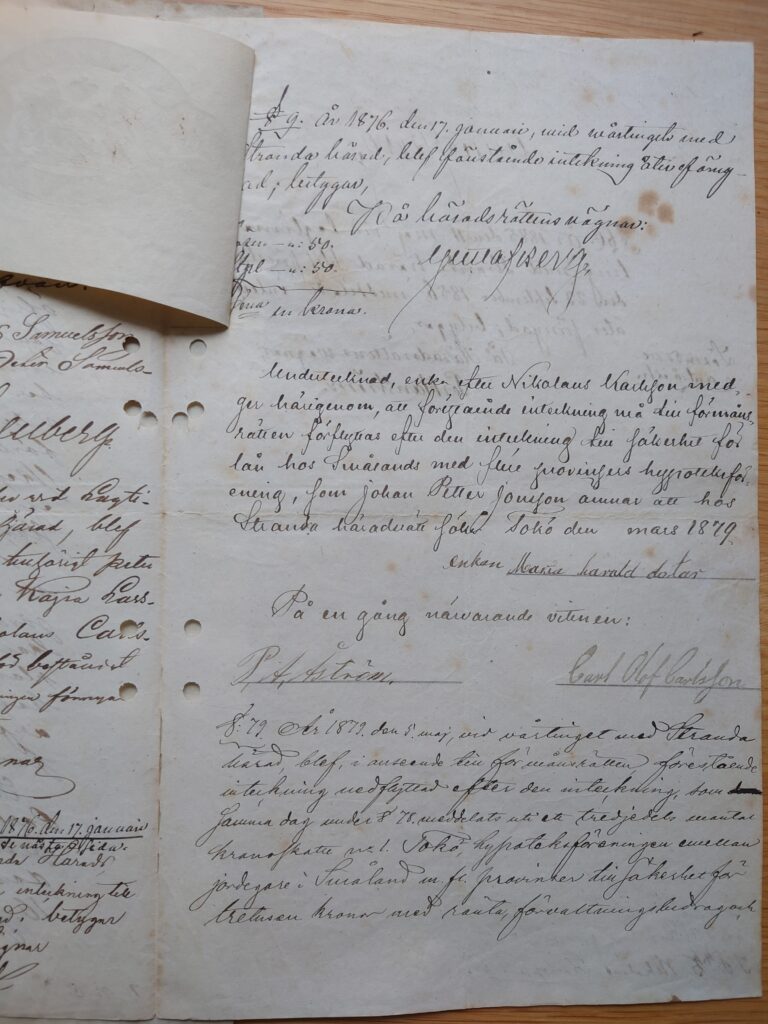 § 9. År 1876. den 17. januari, vid vårtinget med
Stranda härad, blef förestående inteckning åter förny-
ad; betygar,
På häradsrättens vägnar:
Lösen — „: 50.
Stpl — „: 50.
en krona.
Undertecknad, enka efter Nikolaus Karlsson med-
ger härigenom, att föregående inteckning må till förmåns-
rätten förflyttas efter den inteckning till säkerhet för
lån hos Smålands med flere provinsers hypoteksför-
ening, som Johan Petter Jonsson ämnar att hos
Stranda häradsrätt söka Tokö den mars 1879.
enkan Maria harald dotar
På en gång närvarande vitnen:
P. A. Åström.
Carl Olof Carlsson
§. 79. År 1879. den 5. maj, vid vårtinget med Stranda
härad, blef, i anseende till förmånsrätten förestående
inteckning nedflyttad efter den inteckning, som
samma dag under § 78. meddelats uti ett tredjedels mantal
kronoskatte nr. 1. Tokö, hypoteksföreningen emellan
jordegare i Småland m. fl. provinser till säkerhet för
tretusen kronor med ränta, förvaltningsbidrag och
Samuelsson
Samuels-
vid Lagti-
härad, blef
Petter
Kajsa Lars-
Carls-
bestånd
förnya
1876. den 17. januari
Härads
inteckning till
betygar